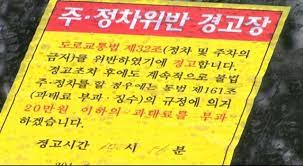 주·정차위반 경고장
도로교통법 제32조(정차 및 주차의
금지)를 위반하였기에 경고합니다.
경고조치 후에도 계속적으로 불법
주·정차를 할 경우에는 동법 제161조
(과태료 부과·징수)의 규정에 의거
20만원 이하의 과태료를 부과
하겠습니다.
경고시간 시 분